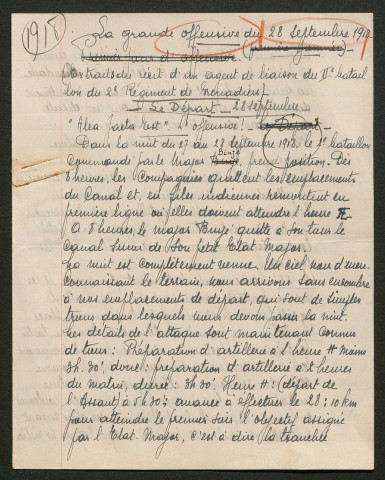 1918
La grande offensive du 28 Septembre 1918
(première journée)
Extraits du récit d'un agent de liaison du IIe batail
lon du 2e Régiment de Grenadiers
I Le Départ - 28 septembre
"Alea Jacta Est". L'offensive! Le Départ
Dans la nuit du 27 au 28 septembre 1918, le 2e bataillon
commandé par le Major Bunje, prend position. Dès
8 heures, les Compagnies quittent les emplacements
du Canal et, en files indiennes remontent en
première ligne où elles doivent attendre l'heure H
A 8 heures, le major Bunje quitte à son tour le
canal suivi de son petit Etat Major.
La nuit est complètement venue. Un ciel noir d'encre
connaissant le terrain, nous arrivons sans encombre
à nos emplacements de départ, qui sont de simples
trous dans lesquels nous devons passer la nuit.
Les détails de l'attaque sont maintenant connus
de tous: Préparation d'artillerie à l'heure H moins
3h.30', donc: préparation d'artillerie à 2 heures
du matin, durée: 3h 30'. Heure H: (départ de
l'Assaut) à 5h30': avance à effectuer le 28: 10 km
pour atteindre le premier soir l'objectif assigné
par l'Etat Major, c'est à dire la tranchée